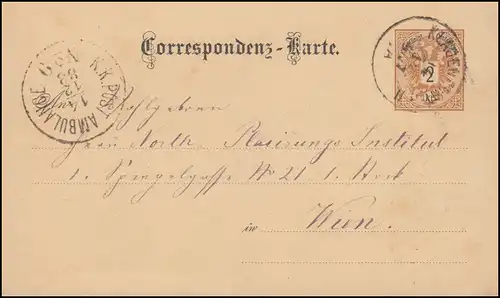 Correspondenz-Karte.
K.K. POST AMBULANCE
2
Wohlgeboren
Herrn North
Institut
1. Spiegelgasse No 21 1. Stock
in Wien.